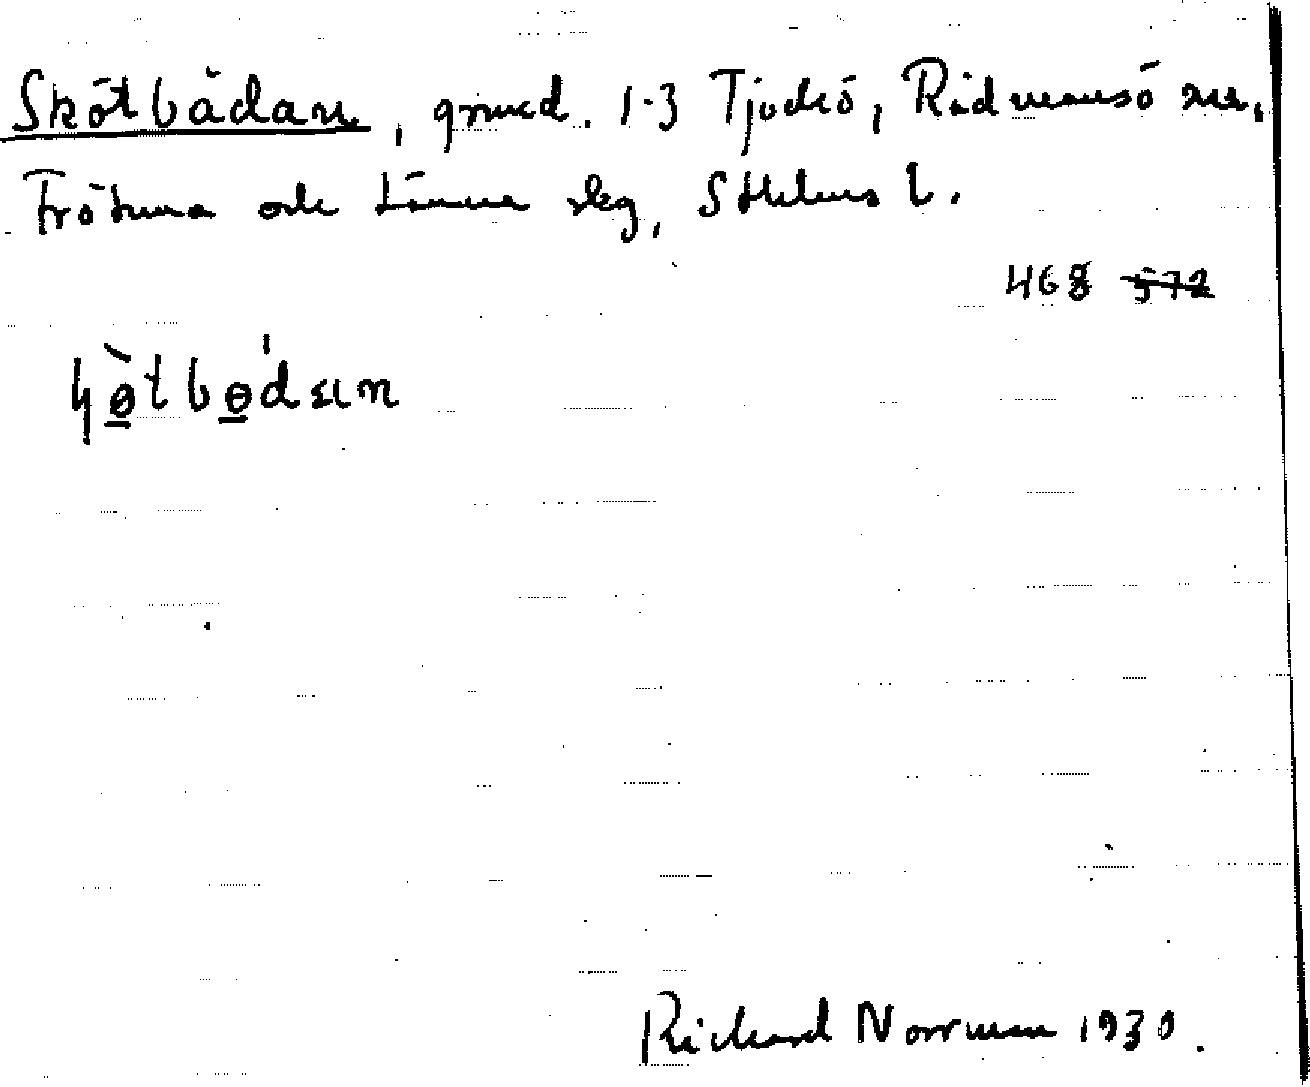 Skötbådan, grund. 1-3 Tjockö, Rådmansö sn,
Frötuna och Länna skg, Sthlms l.
468 572
ɧø̀tbødan
Rickard Norrman 1930.